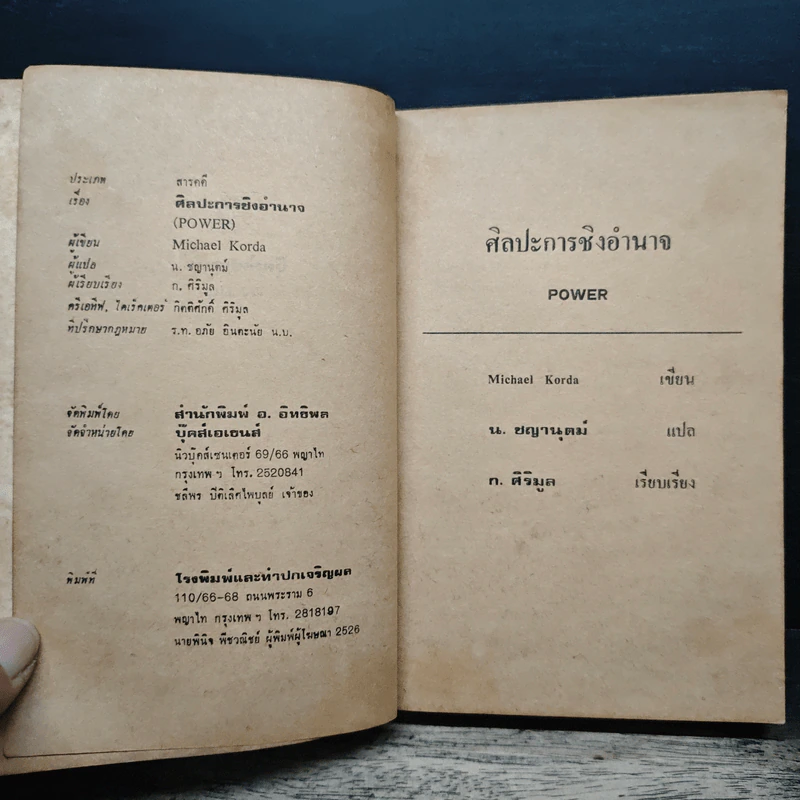 ประเภท สารคดี
เรื่อง ศิลปะการชิงอำนาจ
(POWER)
ผู้เขียน Michael Korda
ผู้แปล น. ชญานุตม์
ผู้เรียบเรียง ก. ศิริมูล
ครีเอทีฟ. ไดเร็คเตอร์ กิตติศักดิ์ ศิริมูล
ที่ปรึกษากฎหมาย ร.ท. อภัย อินตะนัย น.บ.
จัดพิมพ์โดย สำนักพิมพ์ อ. อิทธิพล
จัดจำหน่ายโดย บุ๊คส์เอเธนส์
นิวบุ๊คส์เซนเตอร์ 69/66 พญาไท
กรุงเทพฯ โทร. 2520841
ชลีพร ปิติเลิศไพบูลย์ เจ้าของ
พิมพ์ที่ โรงพิมพ์และทำปกเจริญผล
110/66-68 ถนนพระราม 6
พญาไท กรุงเทพฯ โทร. 2818197
นายพินิจ พืชวณิชย์ ผู้พิมพ์ผู้โฆษณา 2526
ศิลปะการชิงอำนาจ
POWER
Michael Korda เขียน
น. ชญานุตม์ แปล
ก. ศิริมูล เรียบเรียง